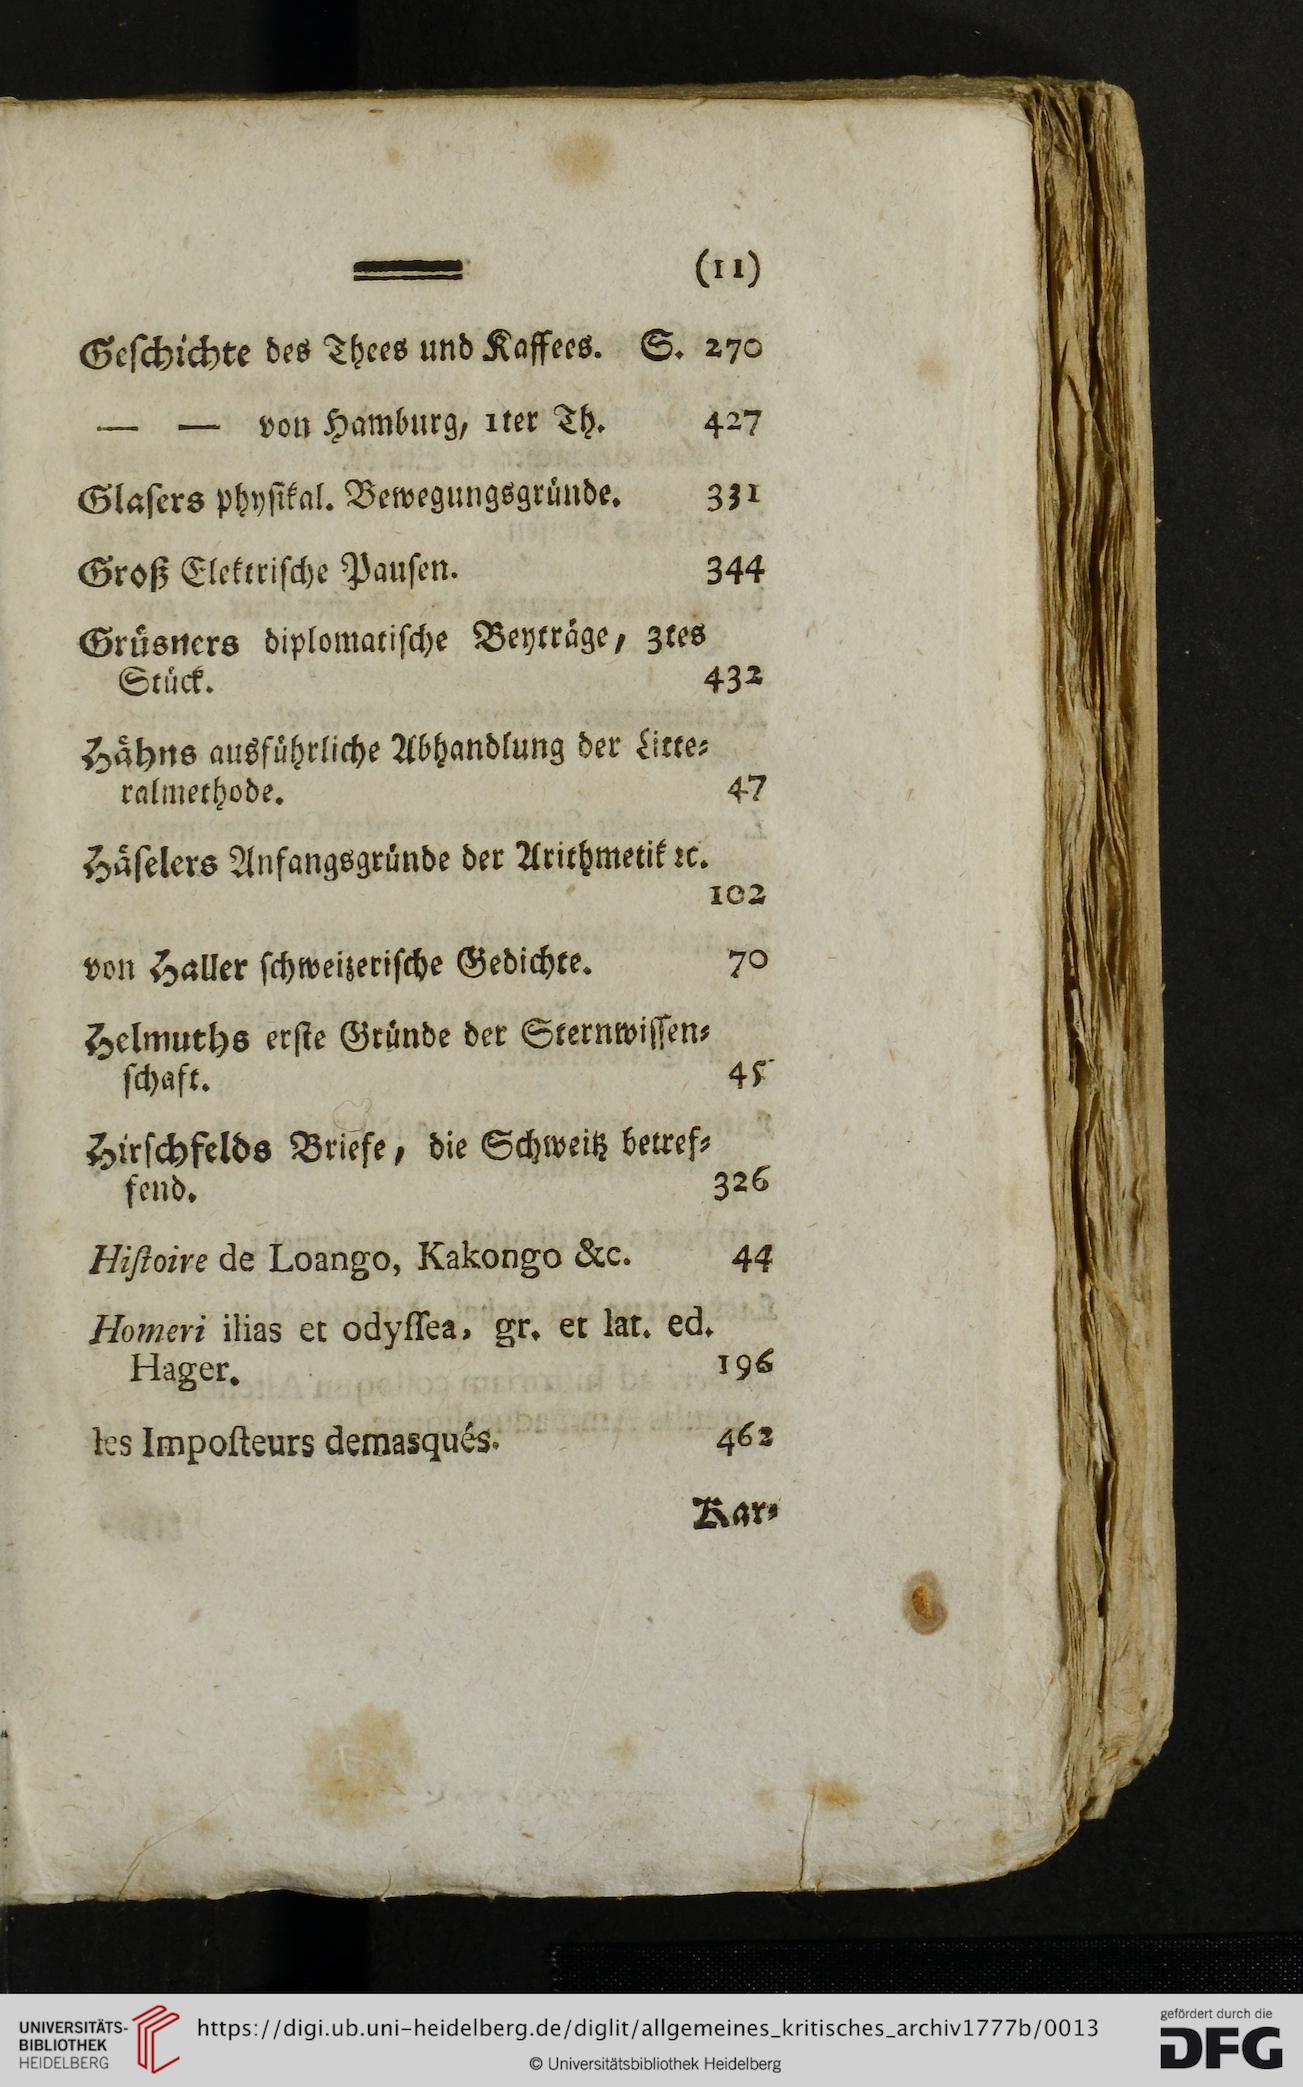 (11)
Geſchichte des Thees und Kaffees. S. 270
— — von Hamburg, 1ter Th. 427
Glaſers phyſikal. Bewegungsgründe. 331
Groß Elektriſche Pauſen. 344
Grüsners diplomatiſche Beyträge, 3tes
Stück. 432
Hähns ausführliche Abhandlung der Litte⸗
ralmethode. 47
Häſelers Anfangsgründe der Arithmetik ꝛc.
102
von Haller ſchweitzeriſche Gedichte. 70
Helmuths erſte Gründe der Sternwiſſen⸗
ſchaft. 45
Hirſchfelds Briefe, die Schweitz betref⸗
fend. 326
Hiſtoire de Loango, Kakongo &c. 44
Homeri ilias et odyſſea, gr. et lat. ed.
Hager. 196
les Impoſteurs demasqués. 462
Kar⸗
UNIVERSITÄTS-
BIBLIOTHEK
HEIDELBERG
https://digi.ub.uni-heidelberg.de/diglit/allgemeines_kritisches_archiv1777b/0013
© Universitätsbibliothek Heidelberg
gefördert durch die
DFG